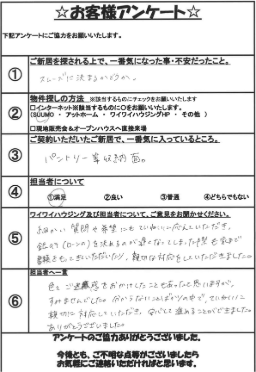 ☆お客様アンケート☆
下記アンケートにご協力をお願いいたします。
① ご新居を探される上で、一番気になった事・不安だったこと。
スムーズに決まるかどうか。
② 物件探しの方法 ※該当するものにチェックをお願いいたします
□インターネット※該当するものに○をお願いいたします。
(SUUMO ・ アットホーム ・ ワイワイハウジングHP ・ その他 )
□現地販売会&オープンハウスへ直接来場
③ ご契約いただいたご新居で、一番気に入っているところ。
パントリー等収納面。
④ 担当者について
①満足 ②良い ③普通 ④どちらでもない
⑤ ワイワイハウジング及び担当者について、ご意見をお聞かせください。
細かい質問や希望にもていねいに応えていただき、
銀行(ローン)を決めるのが遅くなってしまった時も
対応をしていただきました。
⑥ 担当者へ一言
色々ご迷惑をおかけしたこともあったと思いますが、
すみませんでした。分からないことばかりの中で、ていねいに
親切に対応していただき、安心して進めることができました。
ありがとうございました。
アンケートのご協力ありがとうございました。
今後とも、ご不明な点等がございましたら
お気軽にご連絡いただければと思います。